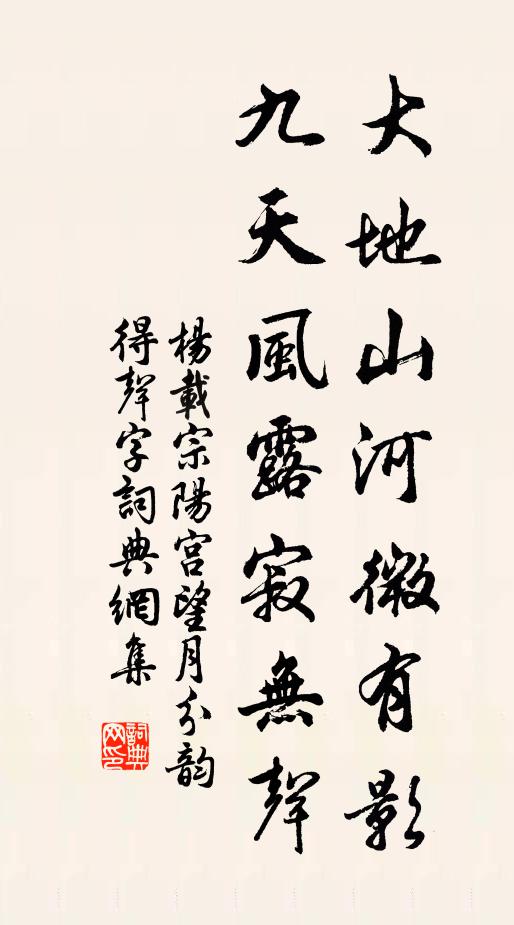 大地山河微有影
九天風露寂無聲
楊載宗陽宮望月分韵
得聲字詞典網集
詞典
网印